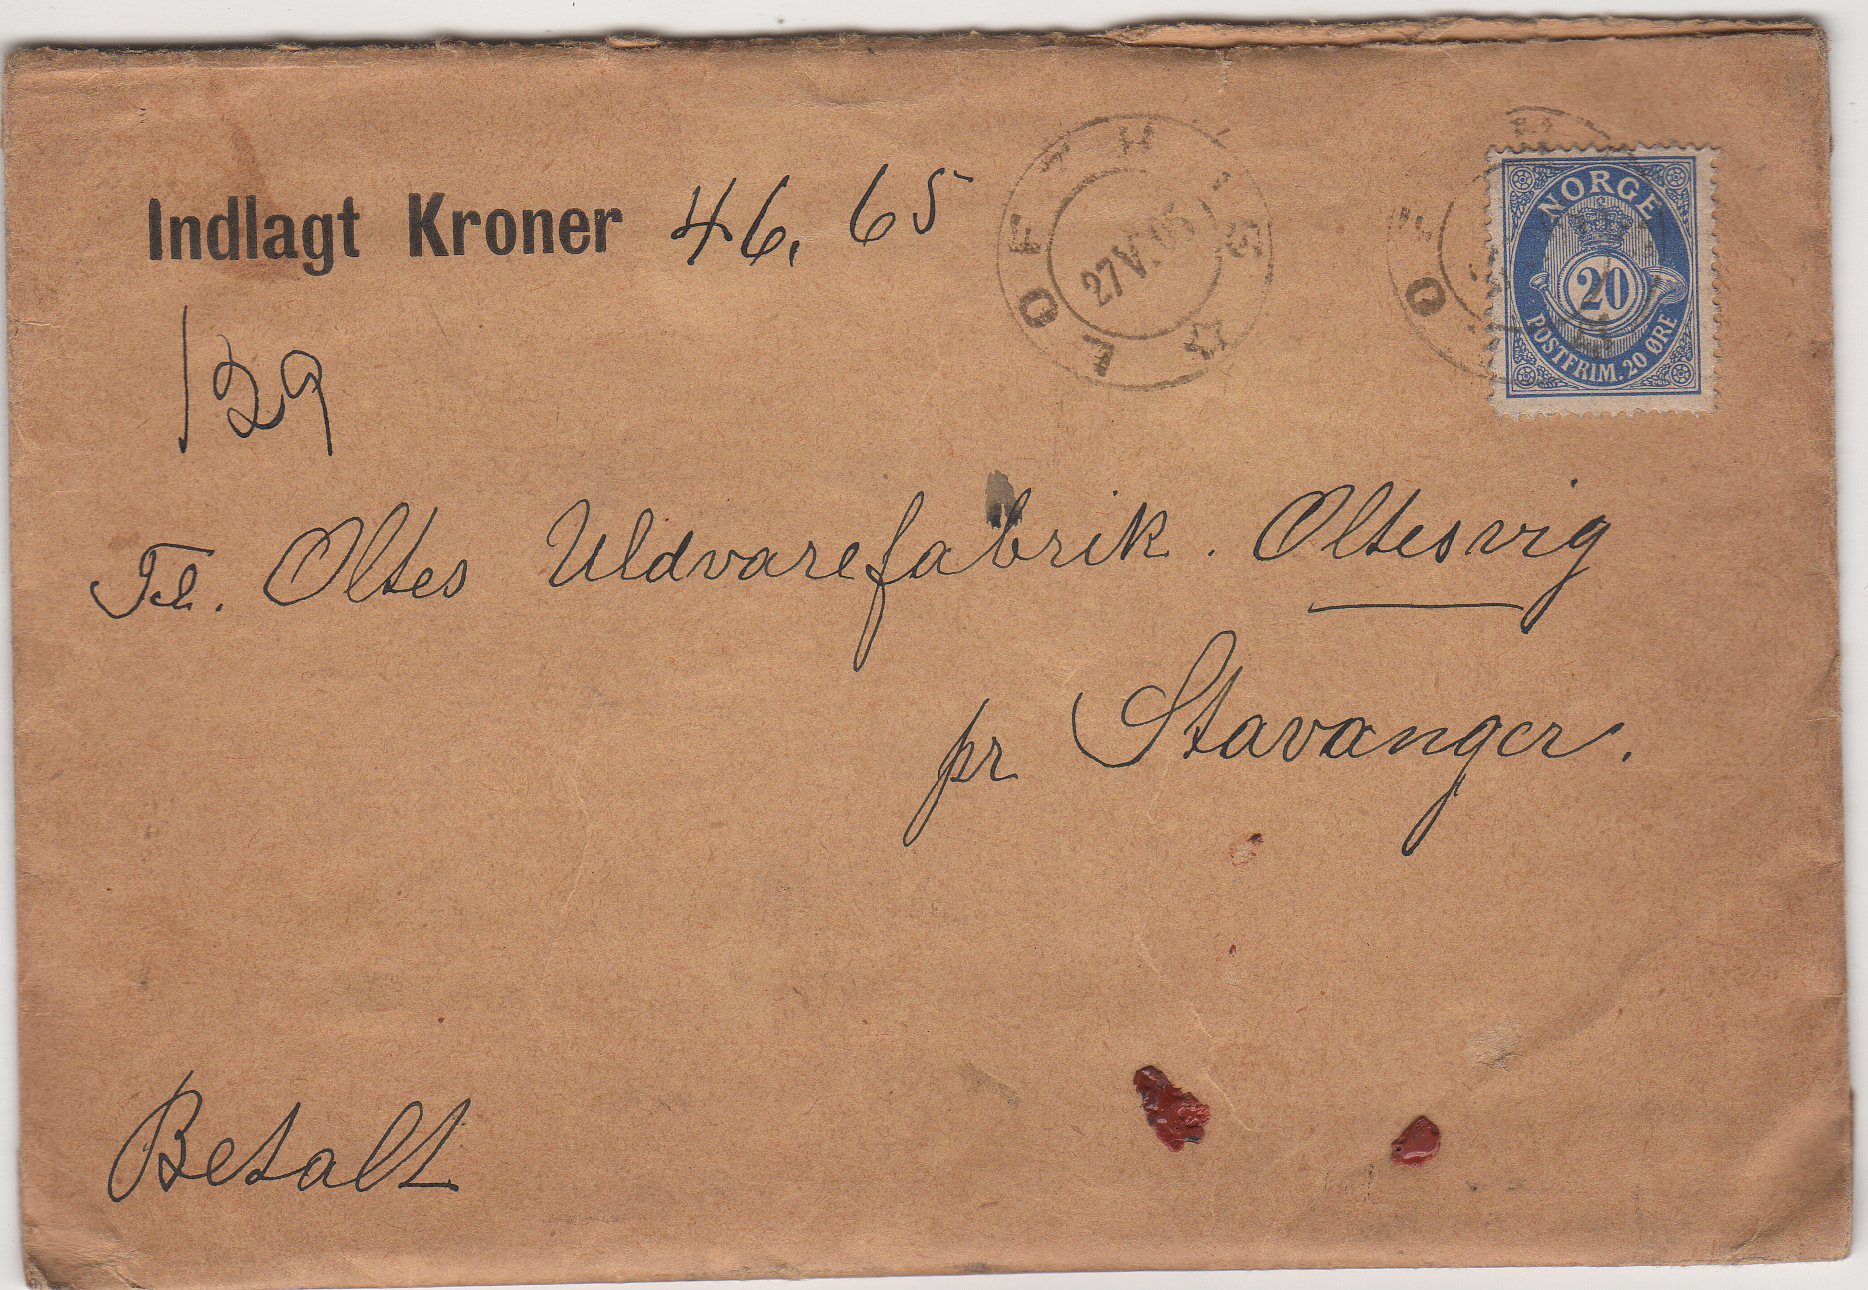 Indlagt Kroner 46,65
LOFTHUS
27 V. 05
NORGE
20
POSTFRIM. 20 ØRE
129
Til. Oltes Uldvarefabrik. Oltesvig
pr Stavanger.
Betalt